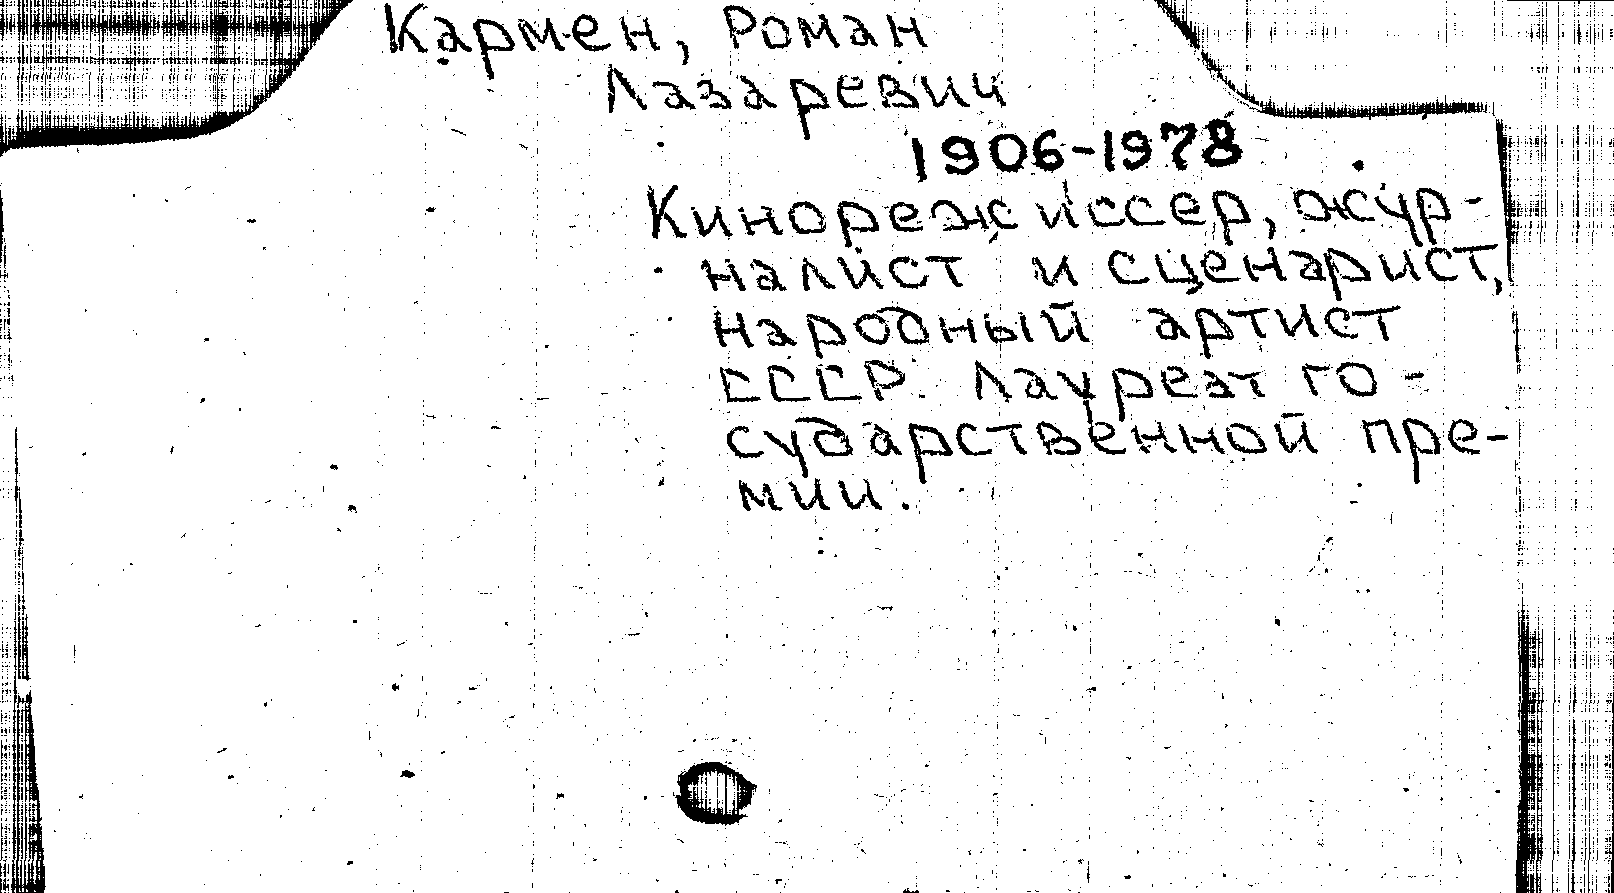 Кармен, Роман
Лазаревич
1906-1978
Кинорежиссер, жур-
налист и сценарист,
народный артист
СССР. Лауреат го-
сударственной пре-
мии.